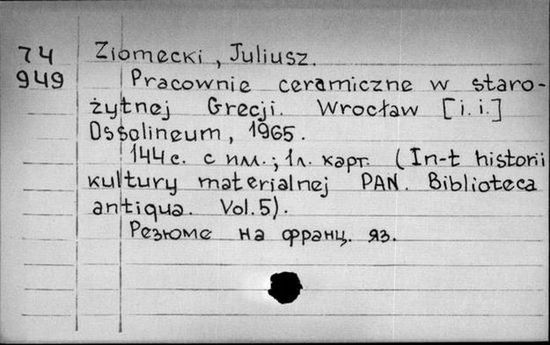 74 Ziomecki, Juliusz.
949 Pracownie ceramiczne w staro-
żytnej Grecji. Wrocław [i.i.]
Ossolineum, 1965.
144 с. с илл.; 1л. карт. (In-t historii
kultury materialnej PAN. Biblioteca
antiqua. Vol.5).
Резюме на франц. яз.